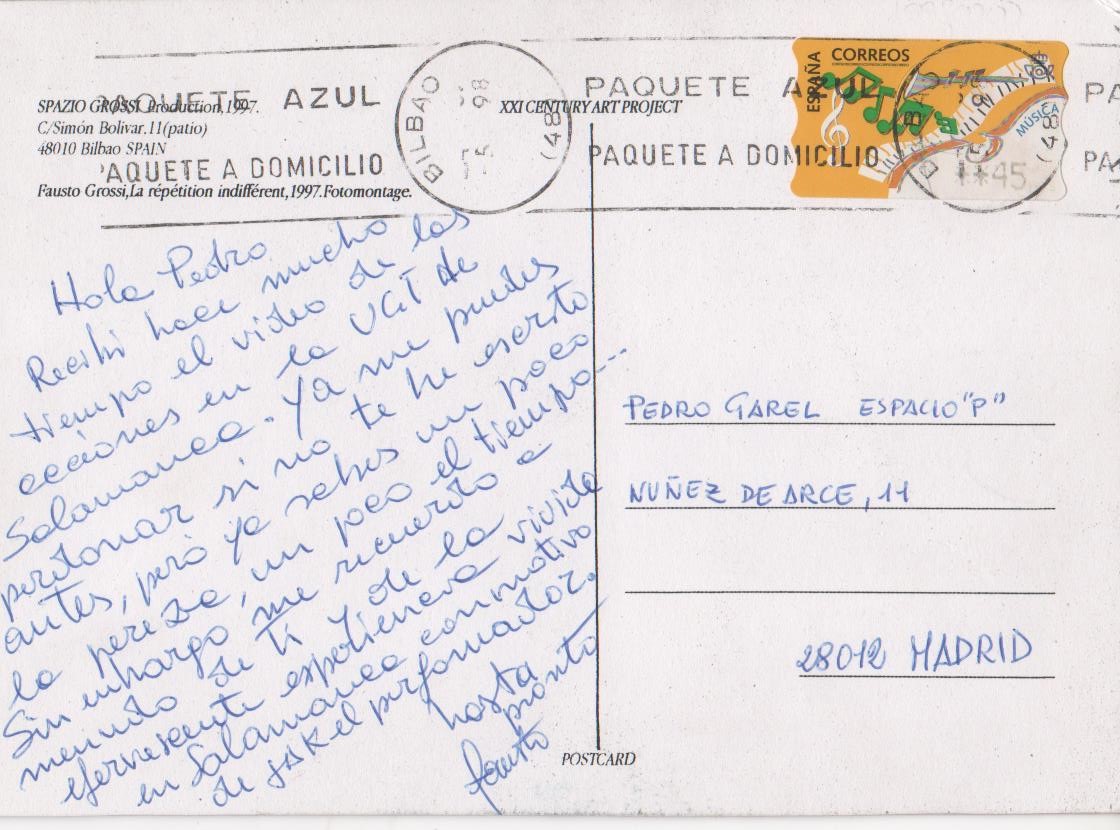 PAQUETE AZUL
PAQUETE A DOMICILIO
SPAZIO GROSSI. Production, 1997.
C/Simón Bolivar. 11 (patio)
48010 Bilbao SPAIN
Fausto Grossi, La répétition indifférent, 1997. Fotomontage.
BILBAO
98
(48
XXI CENTURY ART PROJECT
PAQUETE AZUL
PAQUETE A DOMICILIO
ESPAÑA
CORREOS
MÚSICA
**45
(48
PA
PA
Hola Pedro
Recibi hace mucho
tiempo el video de las
acciones en la UGT de
Salamanca. Ya me puedes
perdonar si no te he escrito
antes, però ya sabes un poco
la perezia, un poco el tiempo...
Sin embargo me recuerdo a
menudo de ti y de la vivida
efervescente experiencia
en Salamanca con motivo
de el performador.
hasta
pronto
fausto
PEDRO GAREL ESPACIO "P"
NUÑEZ DE ARCE, 11
28012 MADRID
POSTCARD